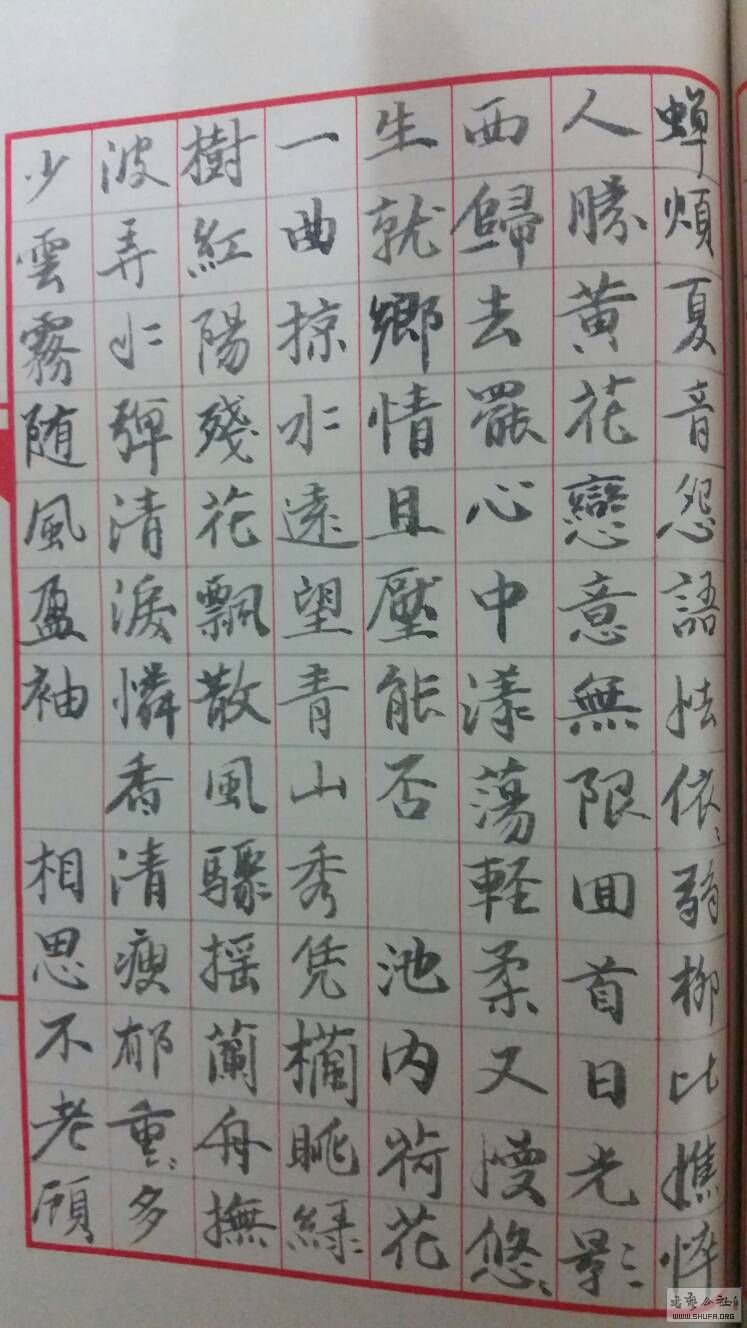 蝉煩夏音怨語怯依、弱柳比憔悴
人勝黄花戀意無限回首日光影〻
西歸去罷心中漾蕩輕柔又慢悠、
生就鄉情且壓能否 池内荷花
一曲掠水遠望青山秀凭欄眺綠
樹紅陽殘花飄散風驟摇蘭舟撫
波弄水彈清淚憐香清瘦郁重、多
少雲霧随風盈袖 相思不老顧
书艺公社
WWW.SHUFA.ORG